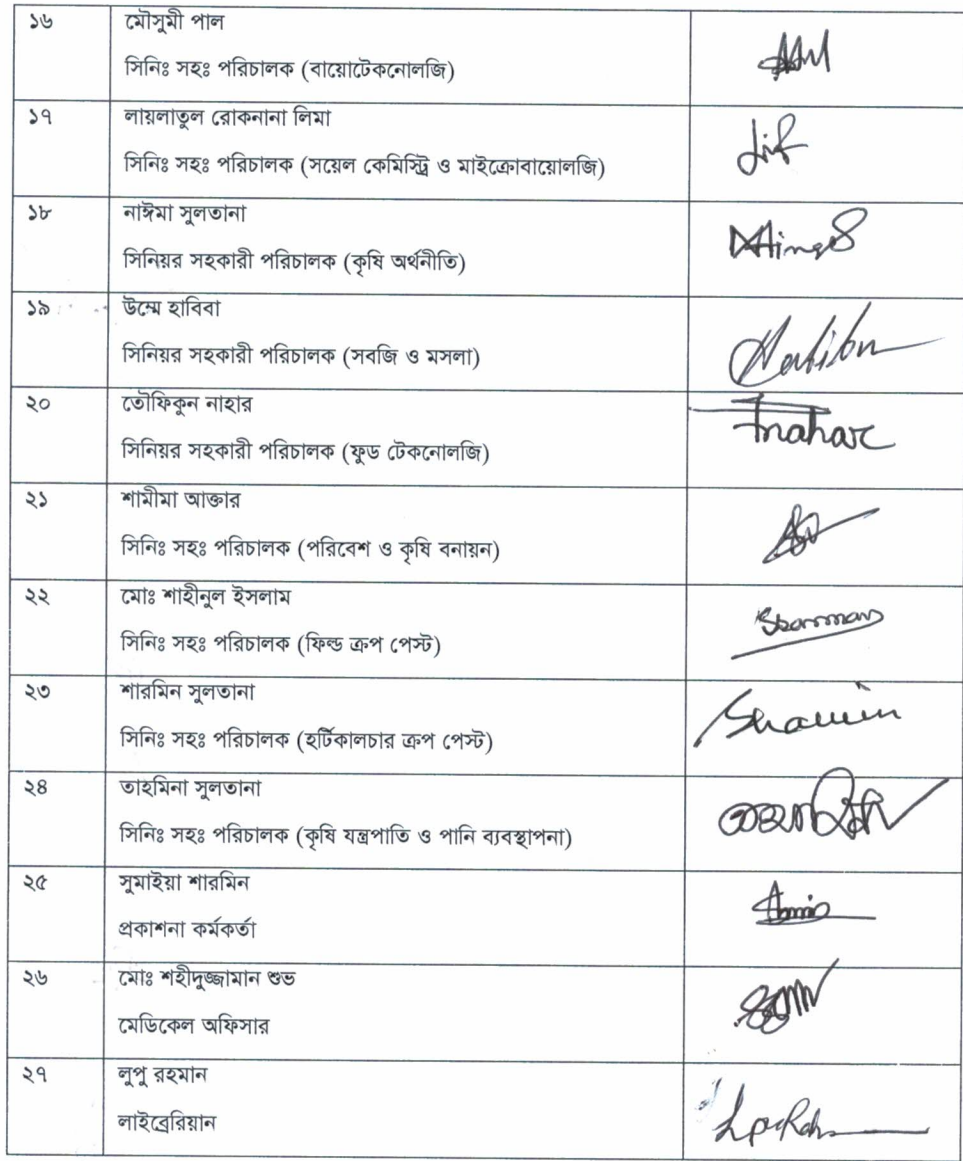 ১৬ মৌসুমী পাল
সিনিঃ সহঃ পরিচালক (বায়োটেকনোলজি)
১৭ লায়লাতুল রোকনানা লিমা
সিনিঃ সহঃ পরিচালক (সয়েল কেমিস্ট্রি ও মাইক্রোবায়োলজি)
১৮ নাঈমা সুলতানা
সিনিয়র সহকারী পরিচালক (কৃষি অর্থনীতি)
১৯ উম্মে হাবিবা
সিনিয়র সহকারী পরিচালক (সবজি ও মসলা)
Habiba
২০ তৌফিকুন নাহার
সিনিয়র সহকারী পরিচালক (ফুড টেকনোলজি)
Tnahar
২১ শামীমা আক্তার
সিনিঃ সহঃ পরিচালক (পরিবেশ ও কৃষি বনায়ন)
২২ মোঃ শাহীনুল ইসলাম
সিনিঃ সহঃ পরিচালক (ফিল্ড ক্রপ পেস্ট)
২৩ শারমিন সুলতানা
সিনিঃ সহঃ পরিচালক (হর্টিকালচার ক্রপ পেস্ট)
২৪ তাহমিনা সুলতানা
সিনিঃ সহঃ পরিচালক (কৃষি যন্ত্রপাতি ও পানি ব্যবস্থাপনা)
২৫ সুমাইয়া শারমিন
প্রকাশনা কর্মকর্তা
২৬ মোঃ শহীদুজ্জামান শুভ
মেডিকেল অফিসার
২৭ লুপু রহমান
লাইব্রেরিয়ান